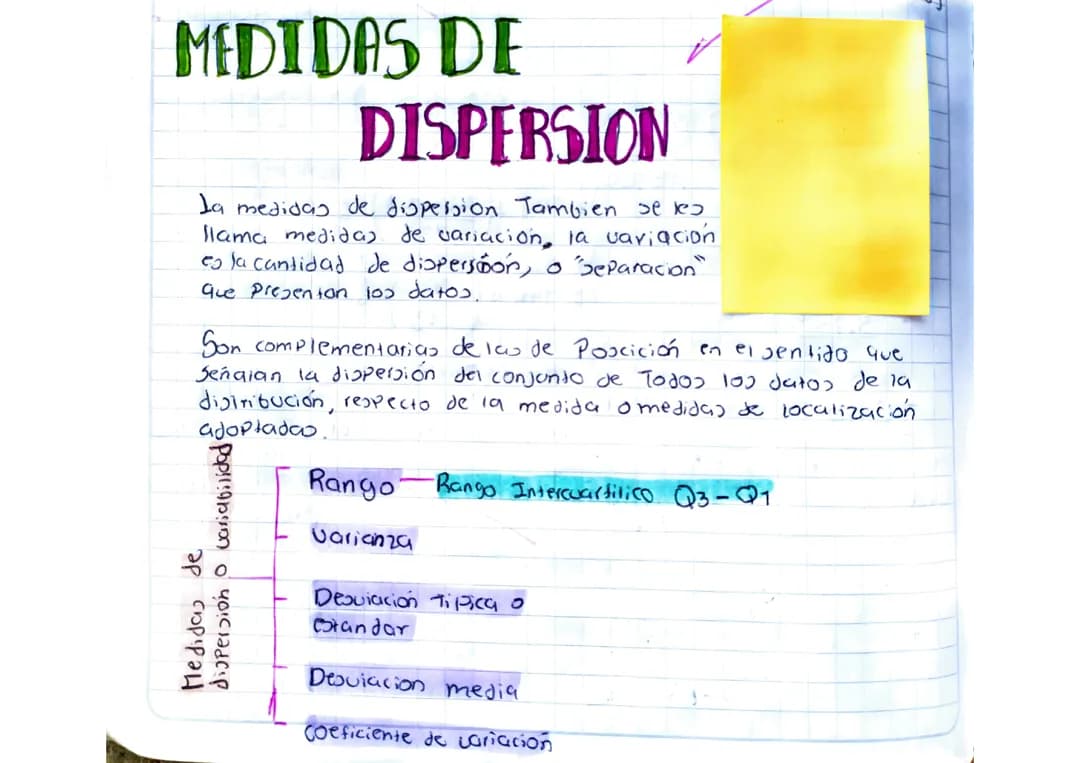 MEDIDAS DE
DISPERSION
La medidas de dispersion Tambien se les
llama medidas de variación, la variación
es la cantidad de dispersión, o "separacion"
que presentan los datos.
Son complementarias de las de Poscición en el sentido que
señalan la dispersión del conjunto de Todos los datos de la
distribución, respecto de la medida o medidas de localización
adoptadas.
Medidas de
dispersión o variabilidad
Rango Rango Intercuartilico Q3-Q1
Varianza
Desviación Tipica o
estandar
Desviacion media
coeficiente de variación